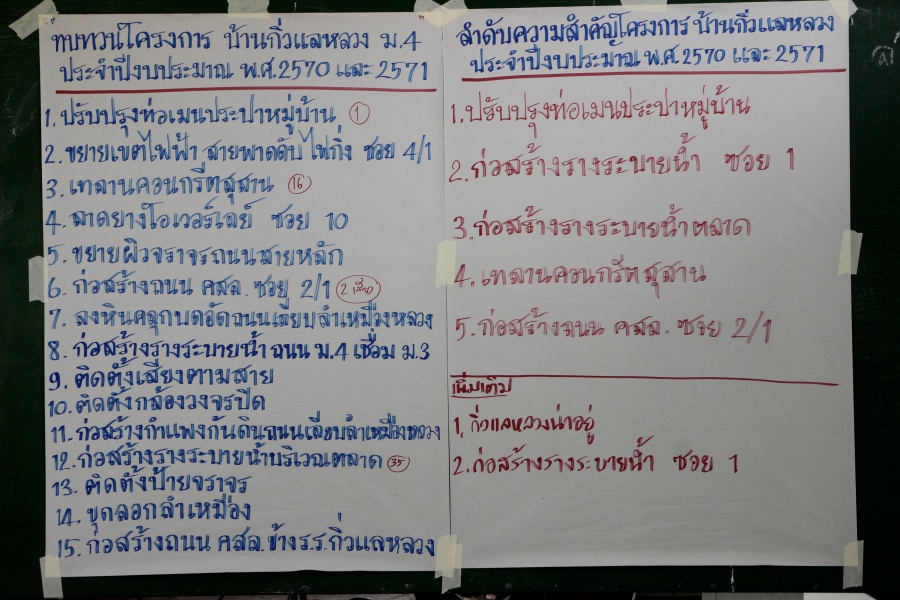 ทบทวนโครงการ บ้านกิ่วแลหลวง ม.4
ประจำปีงบประมาณ พ.ศ.2570 และ 2571
1. ปรับปรุงท่อเมนประปาหมู่บ้าน (1)
2. ขยายเขตไฟฟ้า สายพาดดับ ไฟกิ่ง ซอย 4/1
3. เทลานคอนกรีตสุสาน (16)
4. ลาดยางโอเวอร์เลย์ ซอย 10
5. ขยายผิวจราจรถนนสายหลัก
6. ก่อสร้างถนน คสล. ซอย 2/1 (2 เสียง)
7. ลงหินคลุกบดอัดถนนเลียบลำเหมืองหลวง
8. ก่อสร้างรางระบายน้ำ ถนน ม.4 เชื่อม ม.3
9. ติดตั้งเสียงตามสาย
10. ติดตั้งกล้องวงจรปิด
11. ก่อสร้างกำแพงกันดินถนนเลียบลำเหมืองหลวง
12. ก่อสร้างรางระบายน้ำบริเวณตลาด (35)
13. ติดตั้งป้ายจราจร
14. ขุดลอกลำเหมือง
15. ก่อสร้างถนน คสล.ข้างร.ร.กิ่วแลหลวง
ลำดับความสำคัญโครงการ บ้านกิ่วแลหลวง
ประจำปีงบประมาณ พ.ศ.2570 และ 2571
1. ปรับปรุงท่อเมนประปาหมู่บ้าน
2. ก่อสร้างรางระบายน้ำ ซอย 1
3. ก่อสร้างรางระบายน้ำตลาด
4. เทลานคอนกรีตสุสาน
5. ก่อสร้างถนน คสล. ซอย 2/1
เพิ่มเติม
1. กิ่วแลหลวงน่าอยู่
2. ก่อสร้างรางระบายน้ำ ซอย 1